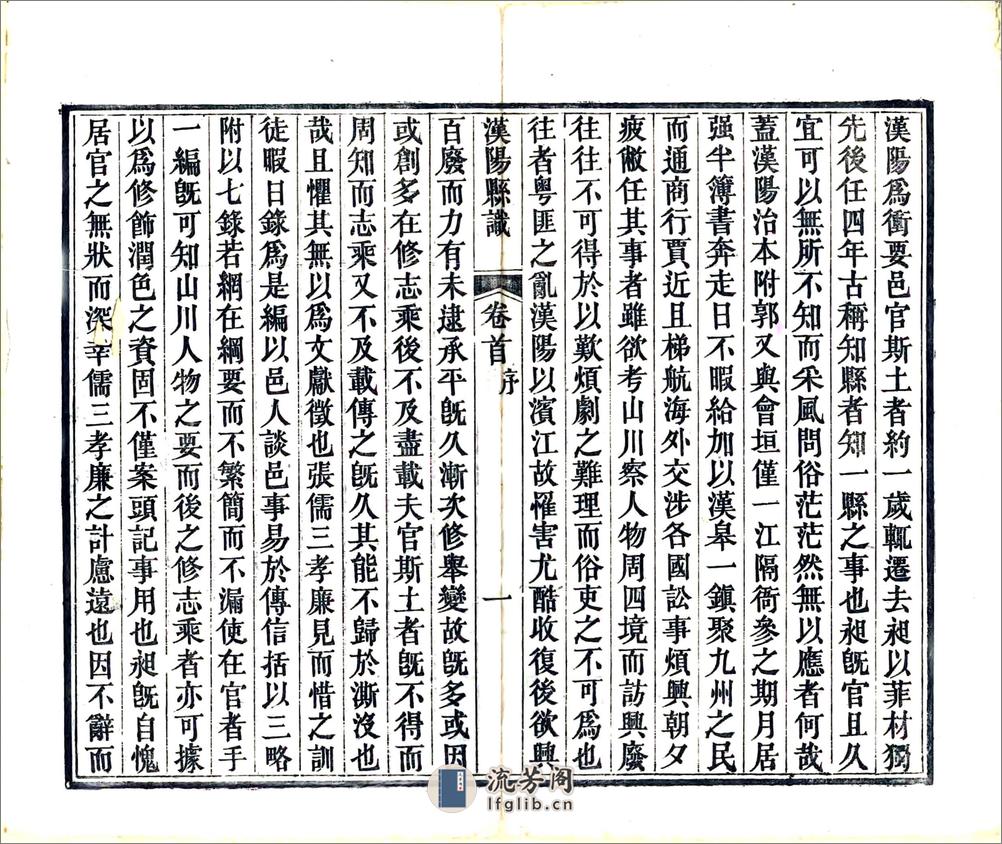 漢陽爲衝要邑官斯土者約一歲輒遷去昶以菲材獨
先後任四年古稱知縣者知一縣之事也昶旣官且久
宜可以無所不知而采風問俗茫茫然無以應者何哉
蓋漢陽治本附郭又與會垣僅一江隔衙參之期月居
强半簿書奔走日不暇給加以漢皋一鎭聚九州之民
而通商行賈近且梯航海外交涉各國訟事煩興朝夕
疲敝任其事者雖欲考山川察人物周四境而訪興廢
往往不可得於以歎煩劇之難理而俗吏之不可爲也
往者粵匪之亂漢陽以濱江故罹害尤酷收復後欲興
漢陽縣識 卷首 序 一
百廢而力有未逮承平旣久漸次修舉變故旣多或因
或創多在修志乘後不及盡載夫官斯土者旣不得而
周知而志乘又不及載傳之旣久其能不歸於澌沒也
哉且懼其無以爲文獻徵也張儒三孝廉見而惜之訓
徒暇日錄爲是編以邑人談邑事易於傳信括以三略
附以七錄若網在綱要而不繁簡而不漏使在官者手
一編旣可知山川人物之要而後之修志乘者亦可據
以爲修飾潤色之資固不僅案頭記事用也昶旣自愧
居官之無狀而深幸儒三孝廉之計慮遠也因不辭而
流芳阁
lfglib.cn